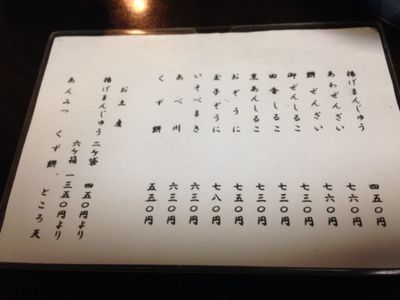 揚げまんじゅう 四五〇円
あわぜんざい 七六〇円
餅ぜんざい 七三〇円
御ぜんしるこ 七三〇円
田舎しるこ 七三〇円
栗あんしるこ 七三〇円
おぞうに 七五〇円
玉子ぞうに 七八〇円
いそべまき 六三〇円
あべ川 六三〇円
くず餅 五五〇円
お土産
揚げまんじゅう 二ケ袋 四五〇円より
六ケ箱 一三五〇円より
あんみつ くず餅 ところ天